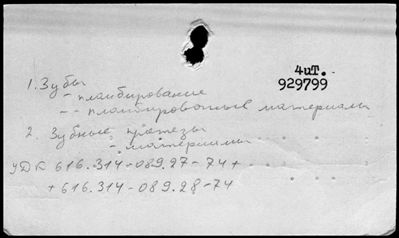 4иT.
929799
1. Зубы
- пламбирование
-- пламбировочные материалы
2. Зубные протезы
- материалы
УДК 616.314-089.27-74+
+616.314-089.28-74